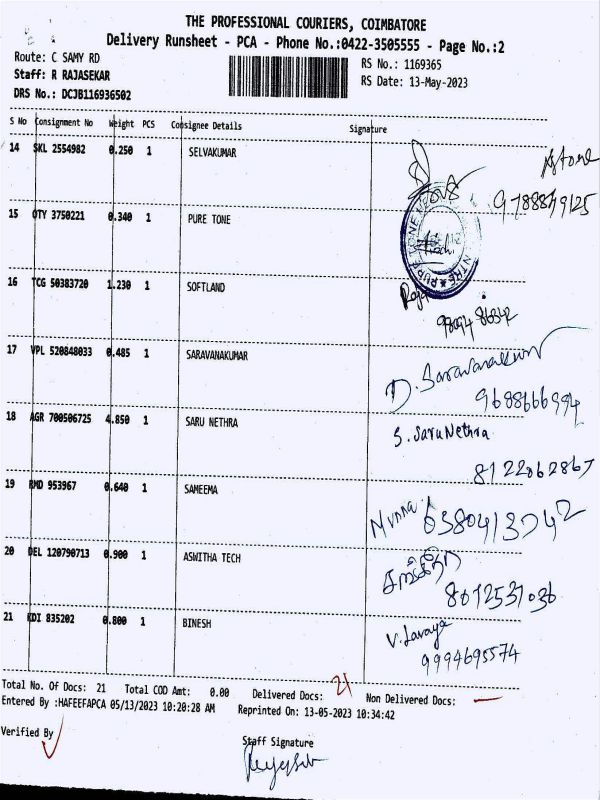 THE PROFESSIONAL COURIERS, COIMBATORE
Delivery Runsheet - PCA - Phone No.:0422-3505555 - Page No.:2
Route: C SAMY RD
RS No.: 1169365
Staff: R RAJASEKAR
RS Date: 13-May-2023
DRS No.: DCJB116936502
S No Consignment No Weight PCS Consignee Details Signature
14 SKL 2554982 0.250 1 SELVAKUMAR
9788849125
15 OTY 3750221 0.340 1 PURE TONE
16 TCG 50383720 1.230 1 SOFTLAND
Raja
98094 86342
17 VPL 520848033 0.485 1 SARAVANAKUMAR
D. Saravanakumar
9688666994
18 AGR 700506725 4.850 1 SARU NETHRA
S. Saru Nethra
8122062867
19 RMD 953967 0.640 1 SAMEEMA
Munna 6380413742
20 DEL 120790713 0.900 1 ASWITHA TECH
8012537036
21 KDI 835202 0.800 1 BINESH
V. Lavaya
9994695574
Total No. Of Docs: 21 Total COD Amt: 0.00 Delivered Docs: 21 Non Delivered Docs: —
Entered By :HAFEEFAPCA 05/13/2023 10:20:28 AM Reprinted On: 13-05-2023 10:34:42
Verified By
Staff Signature